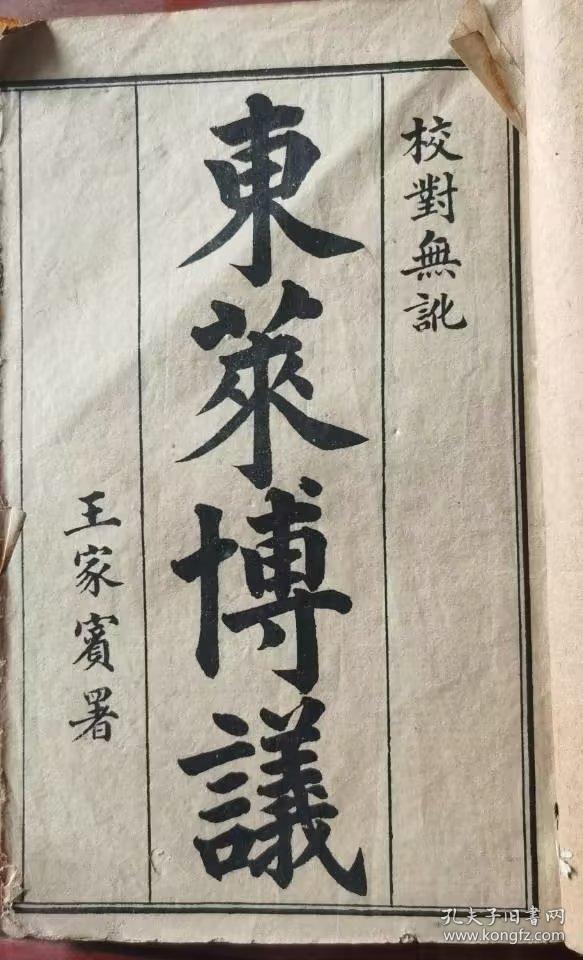 校對無訛
東萊博議
王家賓署
孔夫子旧书网
www.kongfz.com